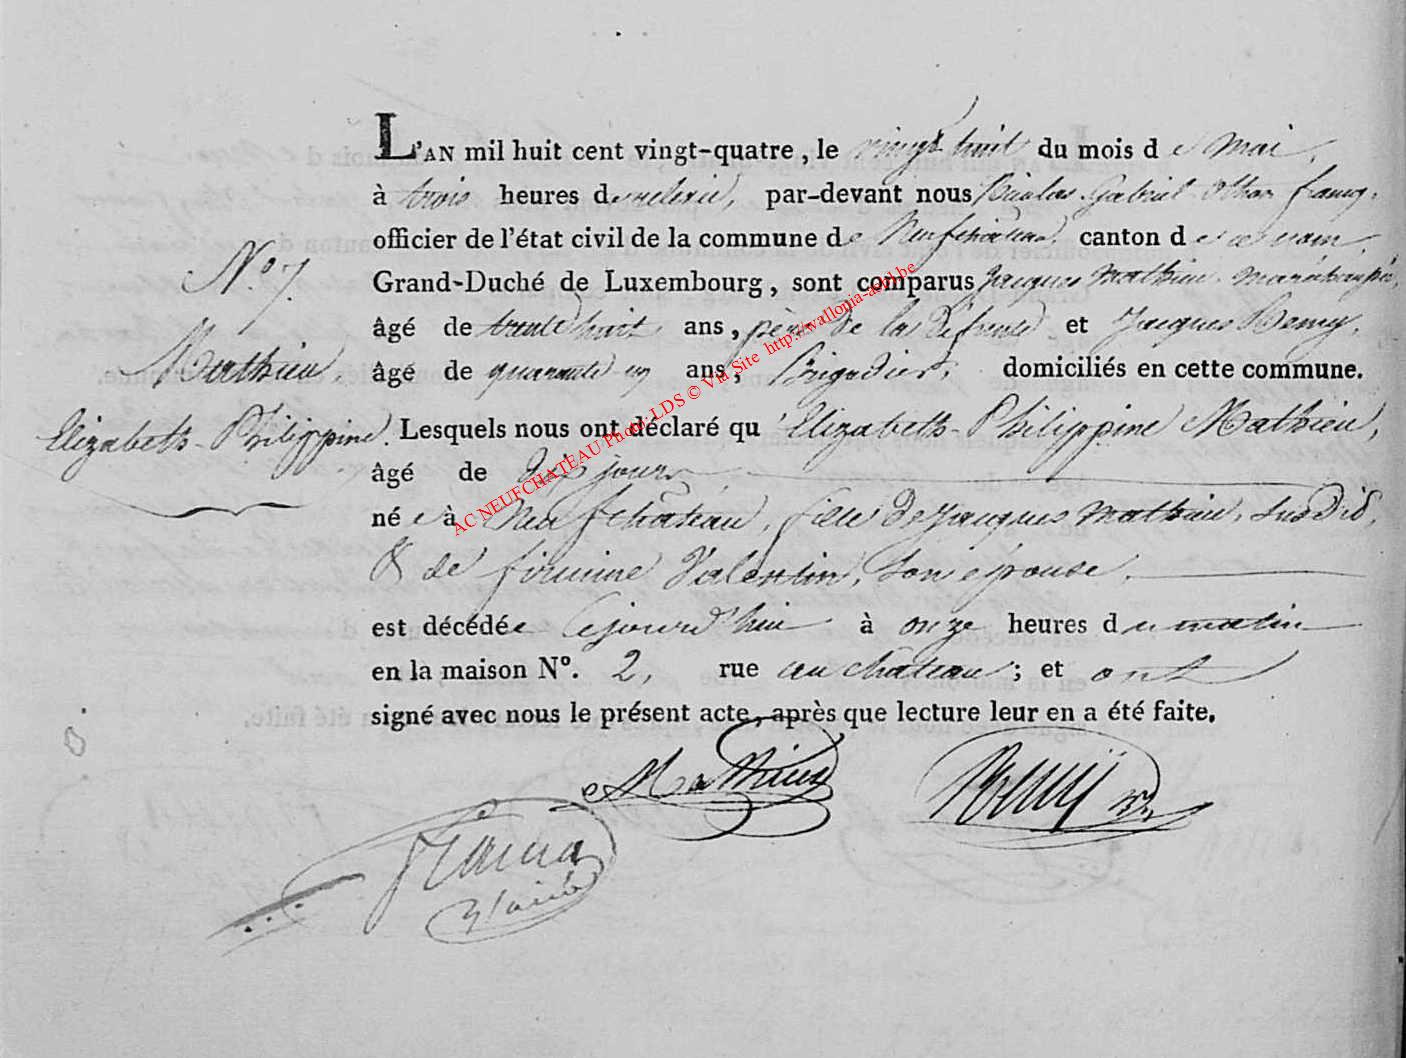 L'AN mil huit cent vingt-quatre, le vingt huit du mois de Mai,
à trois heures de relevée, par-devant nous Nicolas Gabriel
officier de l'état civil de la commune de Neufchateau, canton de
Grand-Duché de Luxembourg, sont comparus Jacques Mathieu,
âgé de trente huit ans, père de la défunte et Jacques Remy,
âgé de quarante un ans, Brigadier, domiciliés en cette commune.
N.o 7.
Mathieu,
Elizabeth-Philippine.
Lesquels nous ont déclaré qu'Elizabeth-Philippine Mathieu,
âgé de dix jours
née à Neufchâteau, fille de Jacques Mathieu, susdit,
& de firmine Valentin, son épouse.
est décédée cejourd'hui à onze heures du matin
en la maison N°. 2, rue au chateau; et ont
signé avec nous le présent acte, après que lecture leur en a été faite.
Mathieu
Remy
AC NEUFCHATEAU Photo LDS © Via Site http://wallonia-asbl.be